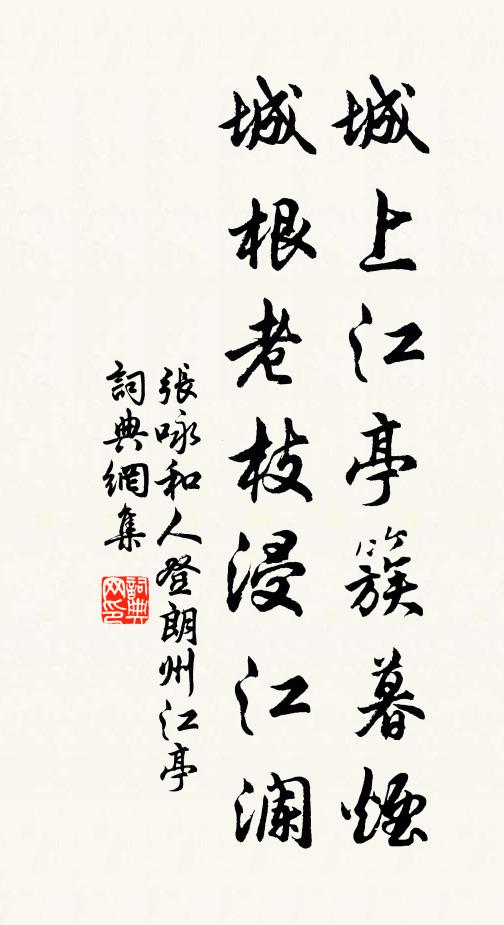 城上江亭簇暮煙
城根老枝浸江瀾
張咏和人登朗州江亭
詞典網集
詞典網印